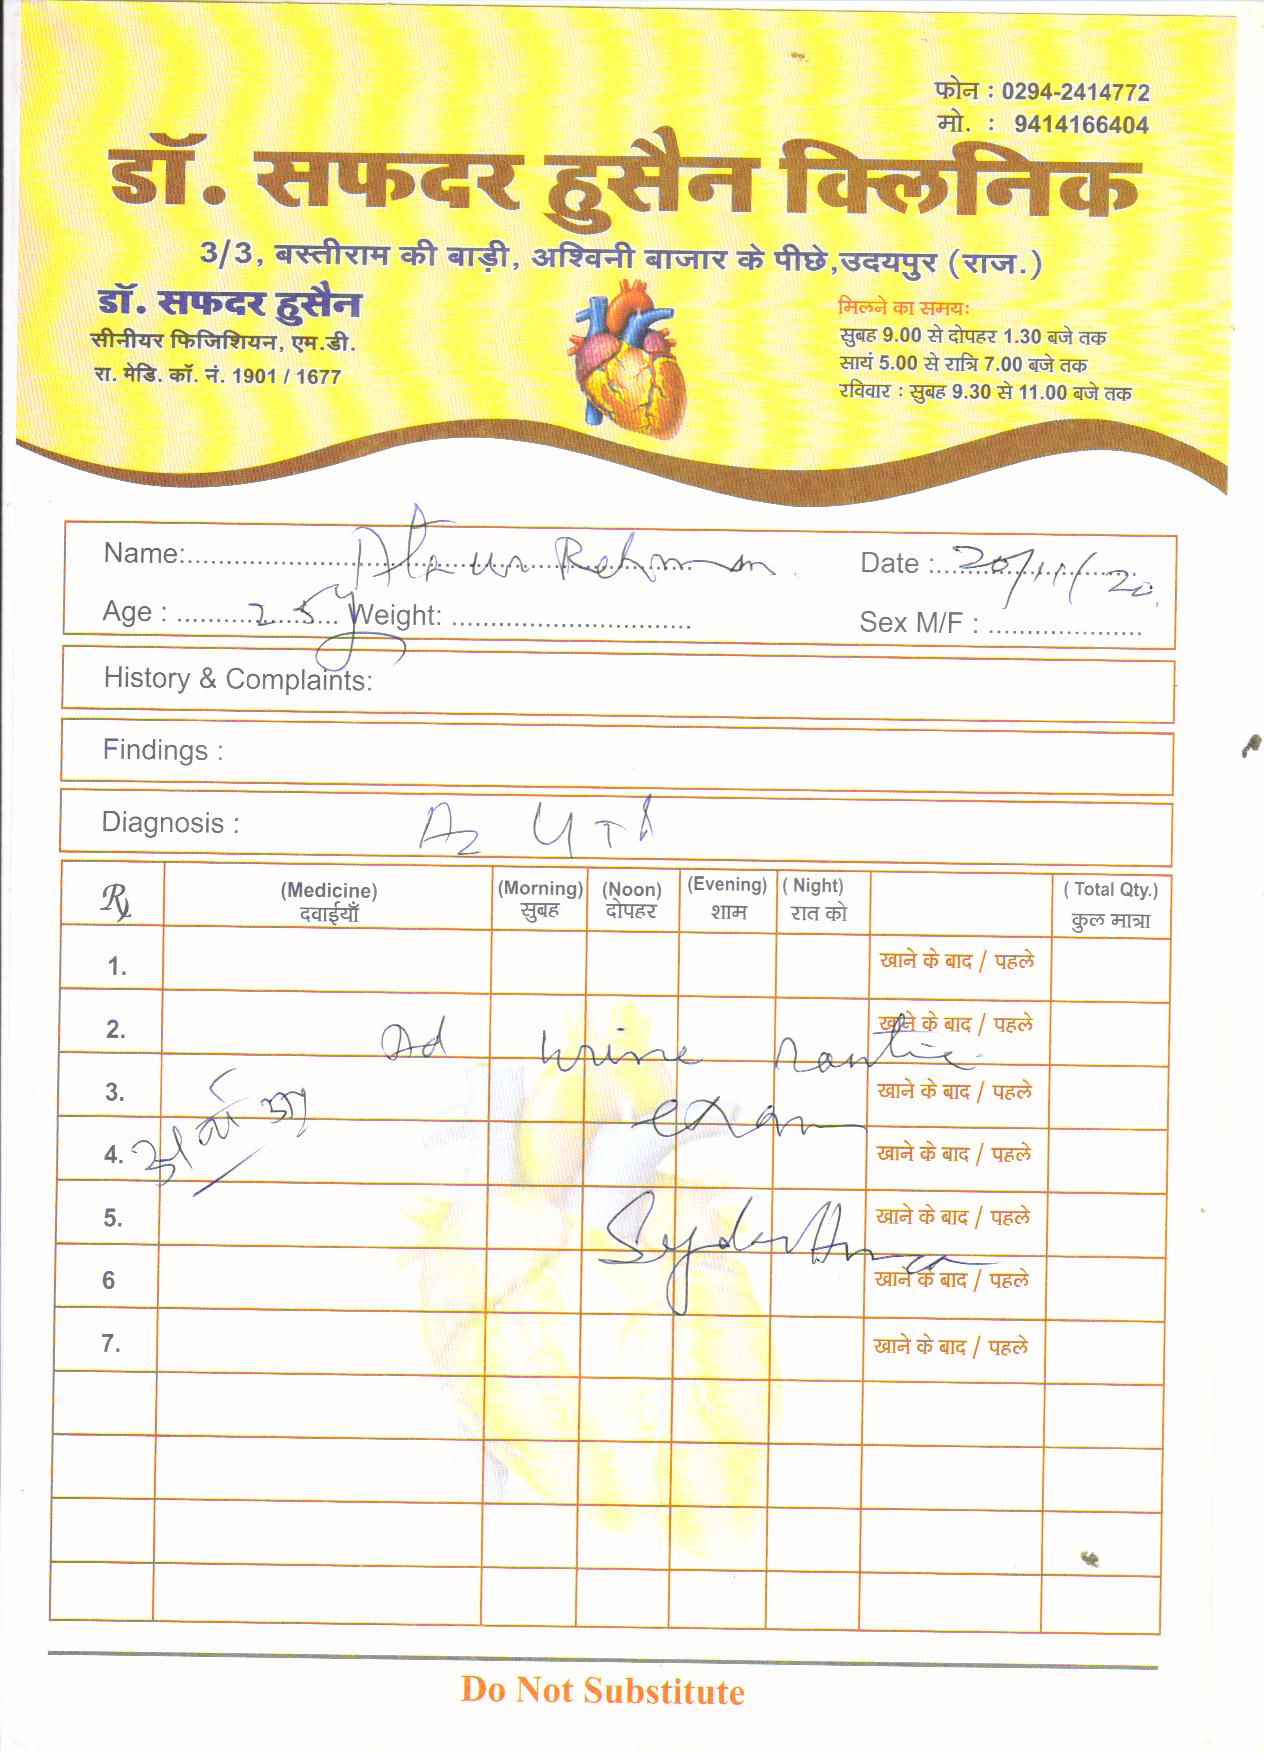 फोन : 0294-2414772
मो. : 9414166404
डॉ. सफदर हुसैन क्लिनिक
3/3, बस्तीराम की बाड़ी, अश्विनी बाजार के पीछे,उदयपुर (राज.)
डॉ. सफदर हुसैन
सीनीयर फिजिशियन, एम.डी.
रा. मेडि. कॉ. नं. 1901 / 1677
मिलने का समय:
सुबह 9.00 से दोपहर 1.30 बजे तक
सायं 5.00 से रात्रि 7.00 बजे तक
रविवार : सुबह 9.30 से 11.00 बजे तक
Name: Rehman Date : 20/11/20
Age : 25y Weight: Sex M/F :
History & Complaints:
Findings :
Diagnosis :
Rx (Medicine) (Morning) (Noon) (Evening) ( Night) ( Total Qty.)
दवाईयाँ सुबह दोपहर शाम रात को कुल मात्रा
1. खाने के बाद / पहले
2. खाने के बाद / पहले
Ad urine routine
3. खाने के बाद / पहले
exam
4. खाने के बाद / पहले
5. खाने के बाद / पहले
6 खाने के बाद / पहले
7. खाने के बाद / पहले
Do Not Substitute